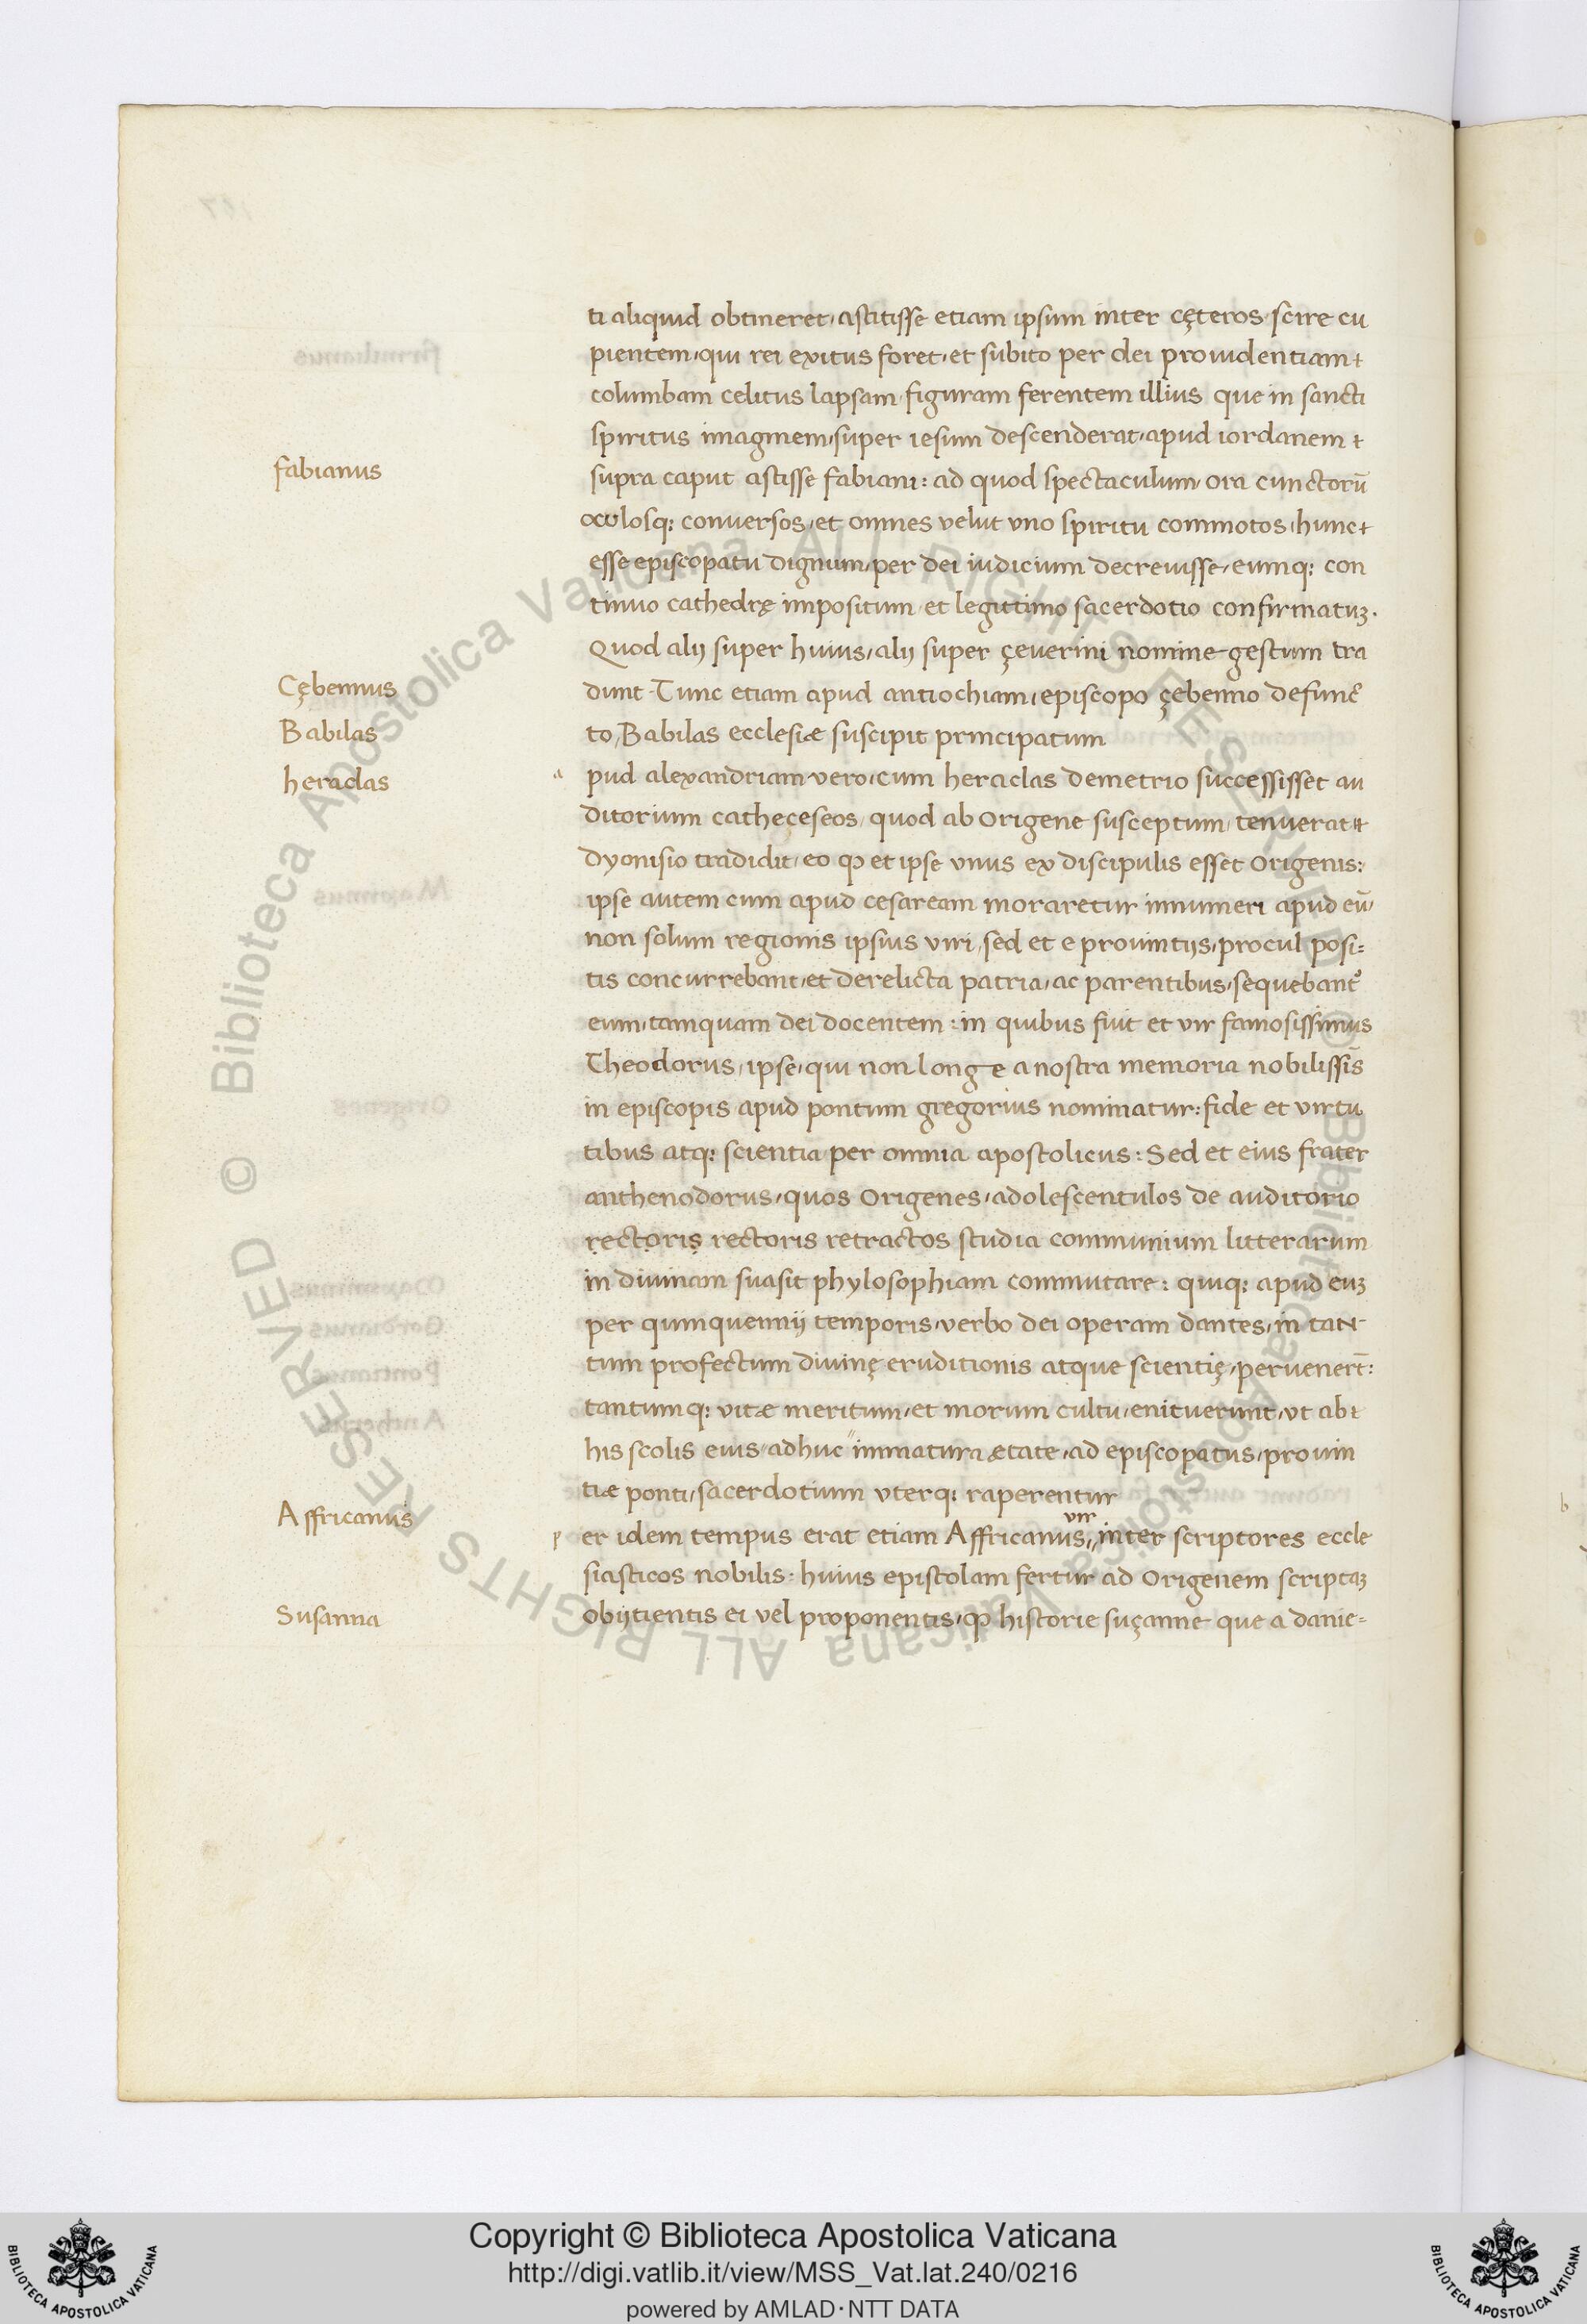 ti aliquid obtineret, astitisse etiam ipsum inter cęteros scire cu
pientem, qui rei exitus foret, et subito per dei prouidentiam
columbam celitus lapsam, figuram ferentem illius que in sancti
spiritus imaginem, super iesum descenderat, apud iordanem
fabianus
supra caput astisse fabiani: ad quod spectaculum, ora cunctorū
oculosq; conuersos, et omnes velut vno spiritu commotos, hunc
esse episcopatu dignum, per dei iudicium decreuisse, eumq; con
tinuo cathedrę impositum, et legittimo sacerdotio confirmatuꝫ.
Quod alij super huius, alij super çeuerini nomine gestum tra
Cębennus
dunt. Tunc etiam apud antiochiam, episcopo çebenno defunc̄
Babilas
to, Babilas ecclesiæ suscipit principatum
heraclas
a pud alexandriam vero, cum heraclas demetrio successisset au
ditorium catheceseos, quod ab Origene susceptum, tenuerat
Dyonisio tradidit, eo ꝙ et ipse vnus ex discipulis esset Origenis:
ipse autem cum apud cesaream moraretur innumeri apud eū,
non solum regionis ipsius viri, sed et e prouintijs, procul posi=
tis concurrebant, et derelicta patria, ac parentibus, sequebant᷑
eum, tamquam dei docentem: in quibus fuit et vir famosissimus
Theodorus, ipse, qui non longe a nostra memoria nobilissīs
in episcopis apud pontum gregorius nominatur: fide et virtu
tibus atq; scientia per omnia apostolicus: Sed et eius frater
anthenodorus, quos Origenes, adolescentulos de auditorio
rectoris rectoris retractos studia communium litterarum
in diuinam suasit phylosophiam commutare: quiq; apud euꝫ
per quinquennij temporis, verbo dei operam dantes, in tan
tum profectum diuinę eruditionis atque scientię, peruenert̄:
tantumq; vitæ meritum, et morum cultu, enituerunt, vt ab
his scolis eius adhuc immatura ætate, ad episcopatus, prouin
tiæ ponti, sacerdotium vterq; raperentur
Affricanus
p er idem tempus erat etiam Affricanus, vir inter scriptores eccle
siasticos nobilis: huius epistolam fertur ad Origenem scriptaꝫ
Susanna
obijtientis ei vel proponentis, ꝙ historie suçanne que a danie=
Copyright © Biblioteca Apostolica Vaticana
http://digi.vatlib.it/view/MSS_Vat.lat.240/0216
powered by AMLAD · NTT DATA
BIBLIOTECA APOSTOLICA VATICANA
BIBLIOTECA APOSTOLICA VATICANA
© Biblioteca Apostolica Vaticana ALL RIGHTS RESERVED
© Biblioteca Apostolica Vaticana ALL RIGHTS RESERVED